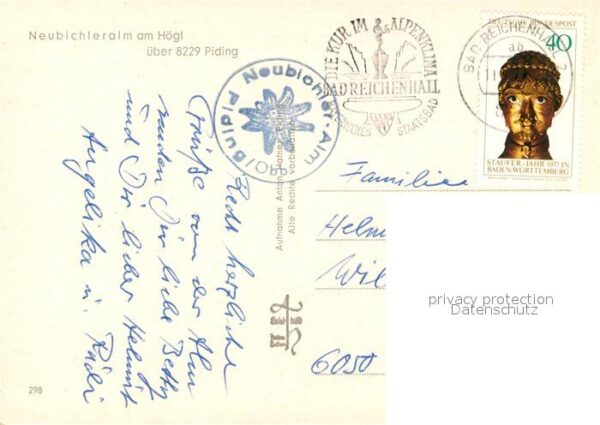 Neubichleralm am Högl
über 8229 Piding
Neubichler-Alm
Piding/Obb
DIE KUR IM ALPENKLIMA
BAD REICHENHALL
BAYERISCHES STAATSBAD
BAD REICHENHALL 2
ab
DEUTSCHE BUNDESPOST
40
STAUFER-JAHR 1977 IN
BADEN/WÜRTTEMBERG
Recht herzliche
Grüße von der Alm
senden Dir liebe Betty
und Dir lieber Helmut
Angelika u. Rudi
Aufnahme Anton Hafner
Alle Rechte vorbehalten
Familie
Helm
Wil
6050
privacy protection
Datenschutz
298